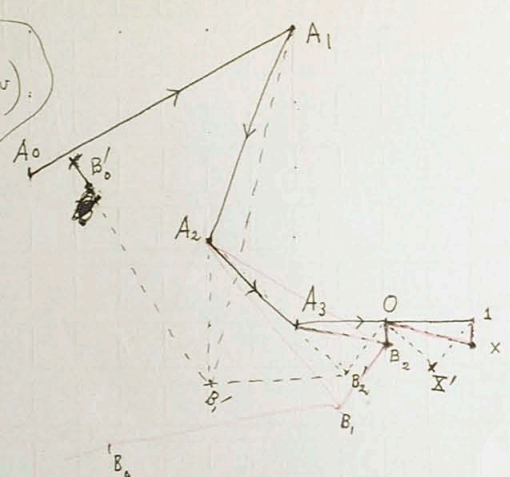 A₁
A₀
B₀'
A₂
A₃
O
1
B₂
x
B₂'
X'
B₁'
B₁
B₀